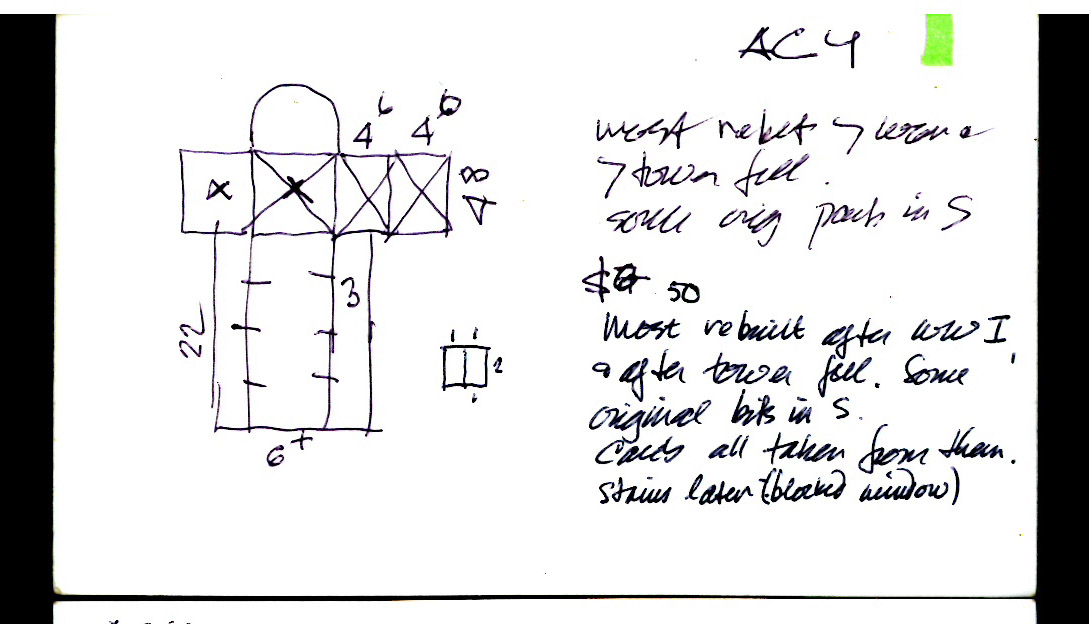 ACY
4⁶ 4⁶
48
3
22
2
6+
most
> tower fell.
some orig parts in S
50
Most rebuilt after WW I
& after tower fell. Some
original bits in S.
Cards all taken from them.
Stairs later (blocked window)